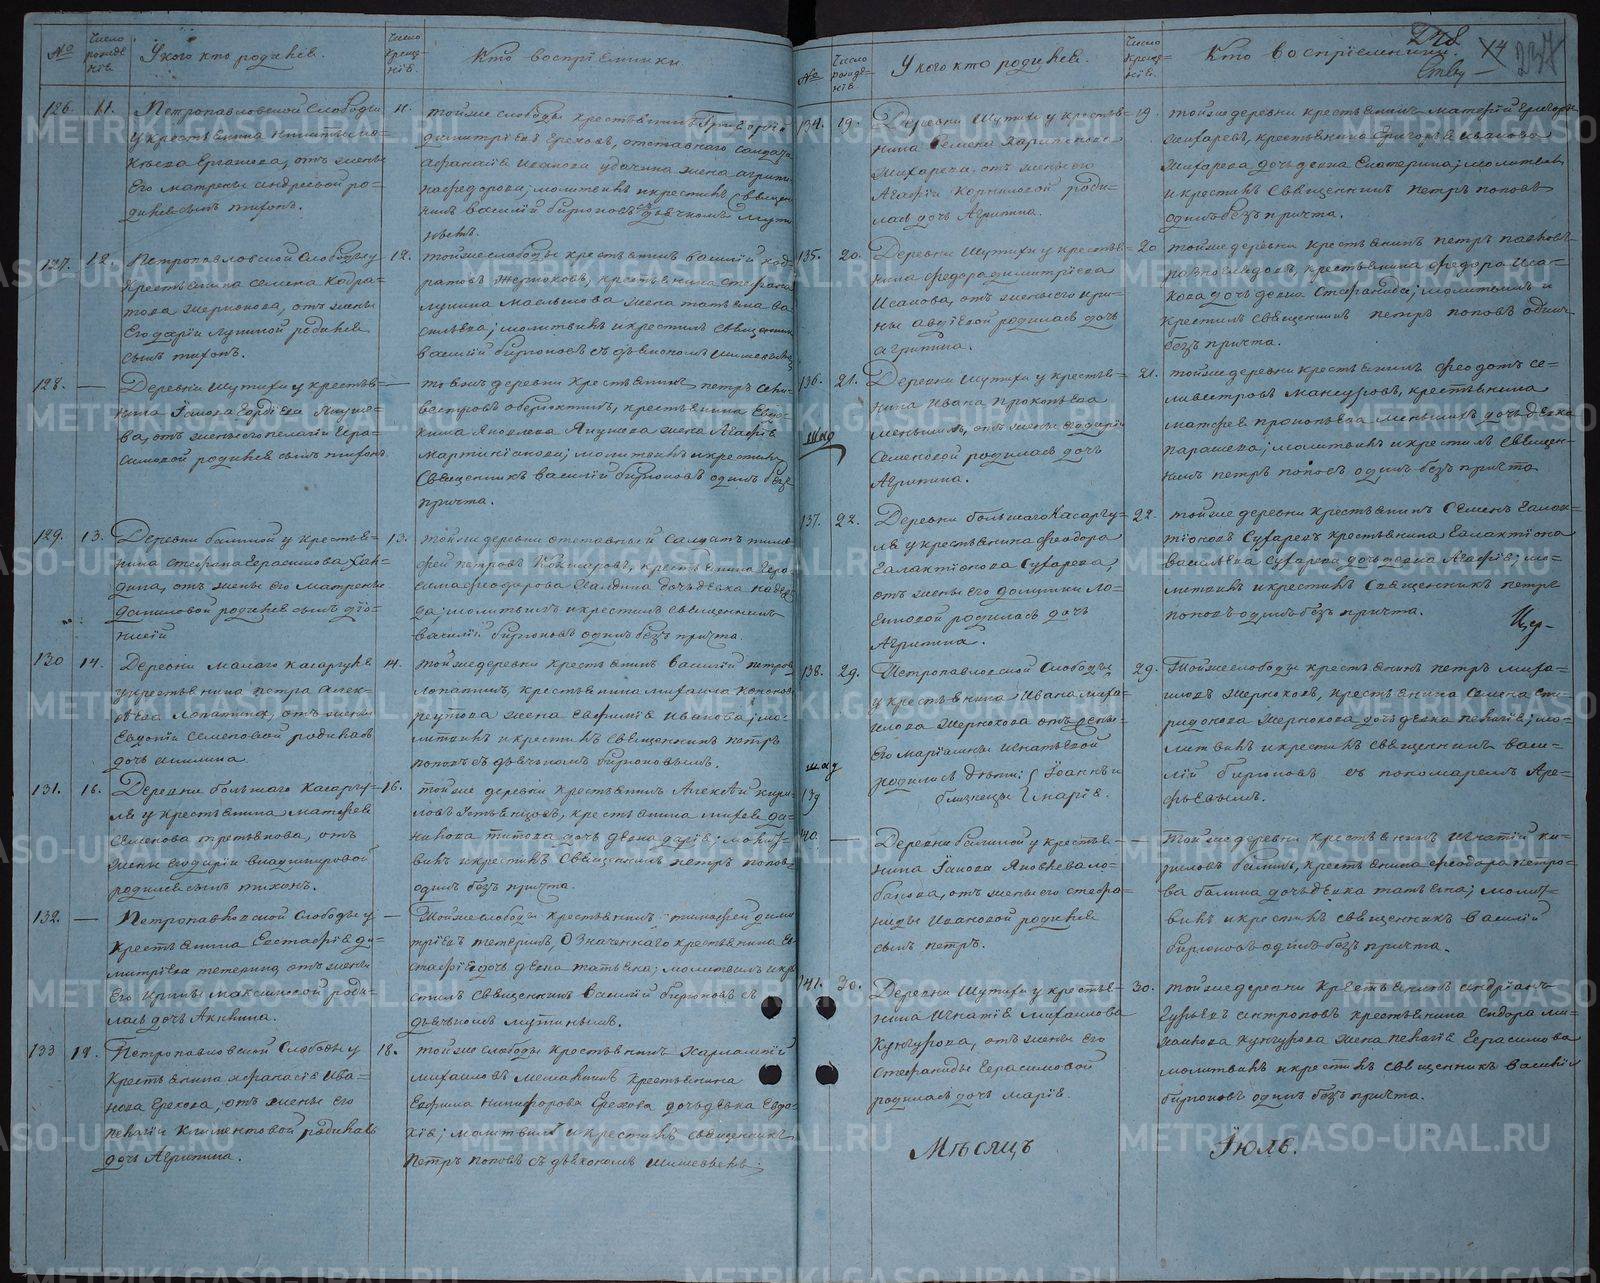 №
Число рожде=нія.
У кого кто родился.
Число креще=нія.
Кто воспріемники.
126.
11.
Петропавловской Слободы
у крестьянина
отъ жены
Его матрены андреевой ро=
дился сынъ тихонъ.
11.
тойже слободы крестьянинъ Григорій
димитріевъ Ереховъ, отставнаго солдата
афанасія иванова жена агрипи=
на федорова; молитвилъ и крестилъ священ=
никъ василій бирюковъ съ дьячкомъ мути=
нымъ.
127.
12.
Петропавловской слободы у
крестьянина семена кодра=
това жернокова, отъ жены
Его дарьи лупиной родился
сынъ тихонъ.
12.
тойже слободы крестьянинъ василій код=
ратовъ жерноковъ, крестьянина стефана
лупина жена татьяна ва=
сильева; молитвилъ и крестилъ священникъ
василій бирюковъ съ дьякономъ
128.
—
Деревни шутихи у крестья=
нина Іакова
ва, отъ жены его пелагіи гера=
симовой родился сынъ тихонъ
—
тоежъ деревни крестьянинъ петръ сели=
вестровъ крестьянина Евдо=
кима Яковлева жена Агафія
мартиніанова; молитвилъ и крестилъ
священникъ василій бирюковъ одинъ безъ
причта.
129.
13.
Деревни балиной у крестья=
нина стефана Герасимова Хал=
дина, отъ жены его матрены
даниловой родился сынъ діо=
нисій
13.
тойже деревни отставный Солдатъ тимо=
фей петровъ крестьянина гера=
сима феодорова Халдина дочь девка надеж=
да; молитвилъ и крестилъ священникъ
василій бирюковъ одинъ безъ причта.
130
14.
Деревни малаго касаргуля
у крестьянина петра алек=
сѣева Лопатина, отъ жены
Евдокіи Семеновой родилась
дочь акилина
14.
тойже деревни крестьянинъ василій петровъ
лопатинъ, крестьянина михаила кононова
реутова жена Евфимія иванова; мо=
литвилъ и крестилъ священникъ петръ
поповъ съ дьячкомъ бирюковымъ.
131.
16.
Деревни большаго касаргу=
ля у крестьянина матфея
семенова третьякова, отъ
жены его даріи владимировой
родился сынъ тихонъ.
16.
тойже деревни крестьянинъ Алексѣй кири=
ловъ крестьянина михея да=
нилова титова дочь девка дарія; молит=
вилъ и крестилъ священникъ петръ поповъ
одинъ безъ причта.
132.
—
Петропавловской слободы у
крестьянина Евстафія ди=
митріева тетерина отъ жены
Его ирины максимовой роди=
лась дочь Акилина.
—
Тойже слободы крестьянинъ тимофей дими
тріевъ тетеринъ, означеннаго крестьянина Ев
стафія дочь девка татьяна; молитвилъ и кре
стилъ священникъ василій бирюковъ съ
дьячкомъ мутинымъ.
133
18.
Петропавловской слободы у
крестьянина афанасія ива=
нова Ерехова, отъ жены его
пелагіи климентовой родилась
дочь Агрипина.
18.
тойже слободы крестьянинъ харлампій
михаиловъ крестьянина
Евфима никифорова Ерехова дочь девка Евдо=
кія; молитвилъ и крестилъ священникъ
петръ поповъ съ дьякономъ
№
Число рожде=нія.
У кого кто родился.
Число креще=нія.
Кто воспріемники.
248
237
134.
19.
Деревни Шутихи у крестья=
нина Семена
отъ жены его
Агафіи Корниловой роди=
лась дочь Агрипина.
19.
тойже деревни крестьянинъ матфей григорь
крестьянина григорья иванова
дочь девка Екатерина; молитвилъ
и крестилъ священникъ петръ поповъ
одинъ безъ причта.
135.
20.
Деревни Шутихи у крестья=
нина федора димитріева
Исакова, отъ жены его ири=
ны авдіевой родилась дочь
агрипина.
20
тойже деревни крестьянинъ петръ павловъ
крестьянина федора Иса=
кова дочь девка Стефанида; молитвилъ и
крестилъ священникъ петръ поповъ одинъ
безъ причта.
136.
21.
Деревни Шутихи у крестья=
нина Ивана прокопьева
меньшихъ, отъ жены его даріи
Семеновой родилась дочь
Агрипина.
21.
тойже деревни крестьянинъ феодотъ се=
ливестровъ мансуровъ, крестьянина
матфея прокопьева меньшихъ дочь девка
парасковья; молитвилъ и крестилъ священ=
никъ петръ поповъ одинъ безъ причта
137.
22.
Деревни большаго касаргу=
ля у крестьянина феодора
галактіонова Сухарева,
отъ жены его домники ло=
гиновой родилась дочь
Агрипина.
22.
тойже деревни крестьянинъ Семенъ галак=
тіоновъ Сухаревъ крестьянина галактіона
васильева Сухарева дочь девка Агафія; мо=
литвилъ и крестилъ священникъ петръ
поповъ одинъ безъ причта.
138.
29.
Петропавловской слободы
у крестьянина Ивана миха=
илова жернокова отъ жены
Его маріамны игнатьевой
родились дѣти: Іоаннъ и
близнецы марія.
139
29.
Тойже слободы крестьянинъ петръ миха=
иловъ жерноковъ, крестьянина семена спи=
ридонова жернокова дочь девка пелагія; мо=
литвилъ и крестилъ священникъ васи=
лій бирюковъ съ пономаремъ Аре=
фьевымъ.
140.
—
Деревни балиной у крестья=
нина Іакова Яковлева ло=
банова, отъ жены его стефа=
ниды ивановой родился
сынъ петръ.
—
тойже деревни крестьянинъ игнатій ки=
риловъ балинъ, крестьянина феодора петро=
ва балина дочь девка татьяна; молит=
вилъ и крестилъ священникъ василій
бирюковъ одинъ безъ причта.
141.
30.
Деревни Шутихи у крестья=
нина игнатія михаилова
кунгурова, отъ жены его
Стефаниды герасимовой
родилась дочь марія.
30.
тойже деревни крестьянинъ андріанъ
гурьевъ антроповъ крестьянина Сидора ми=
хаилова кунгурова жена пелагія герасимова
молитвилъ и крестилъ священникъ василій
бирюковъ одинъ безъ причта.
Мѣсяцъ
Іюль.
METRIKI.GASO-URAL.RU